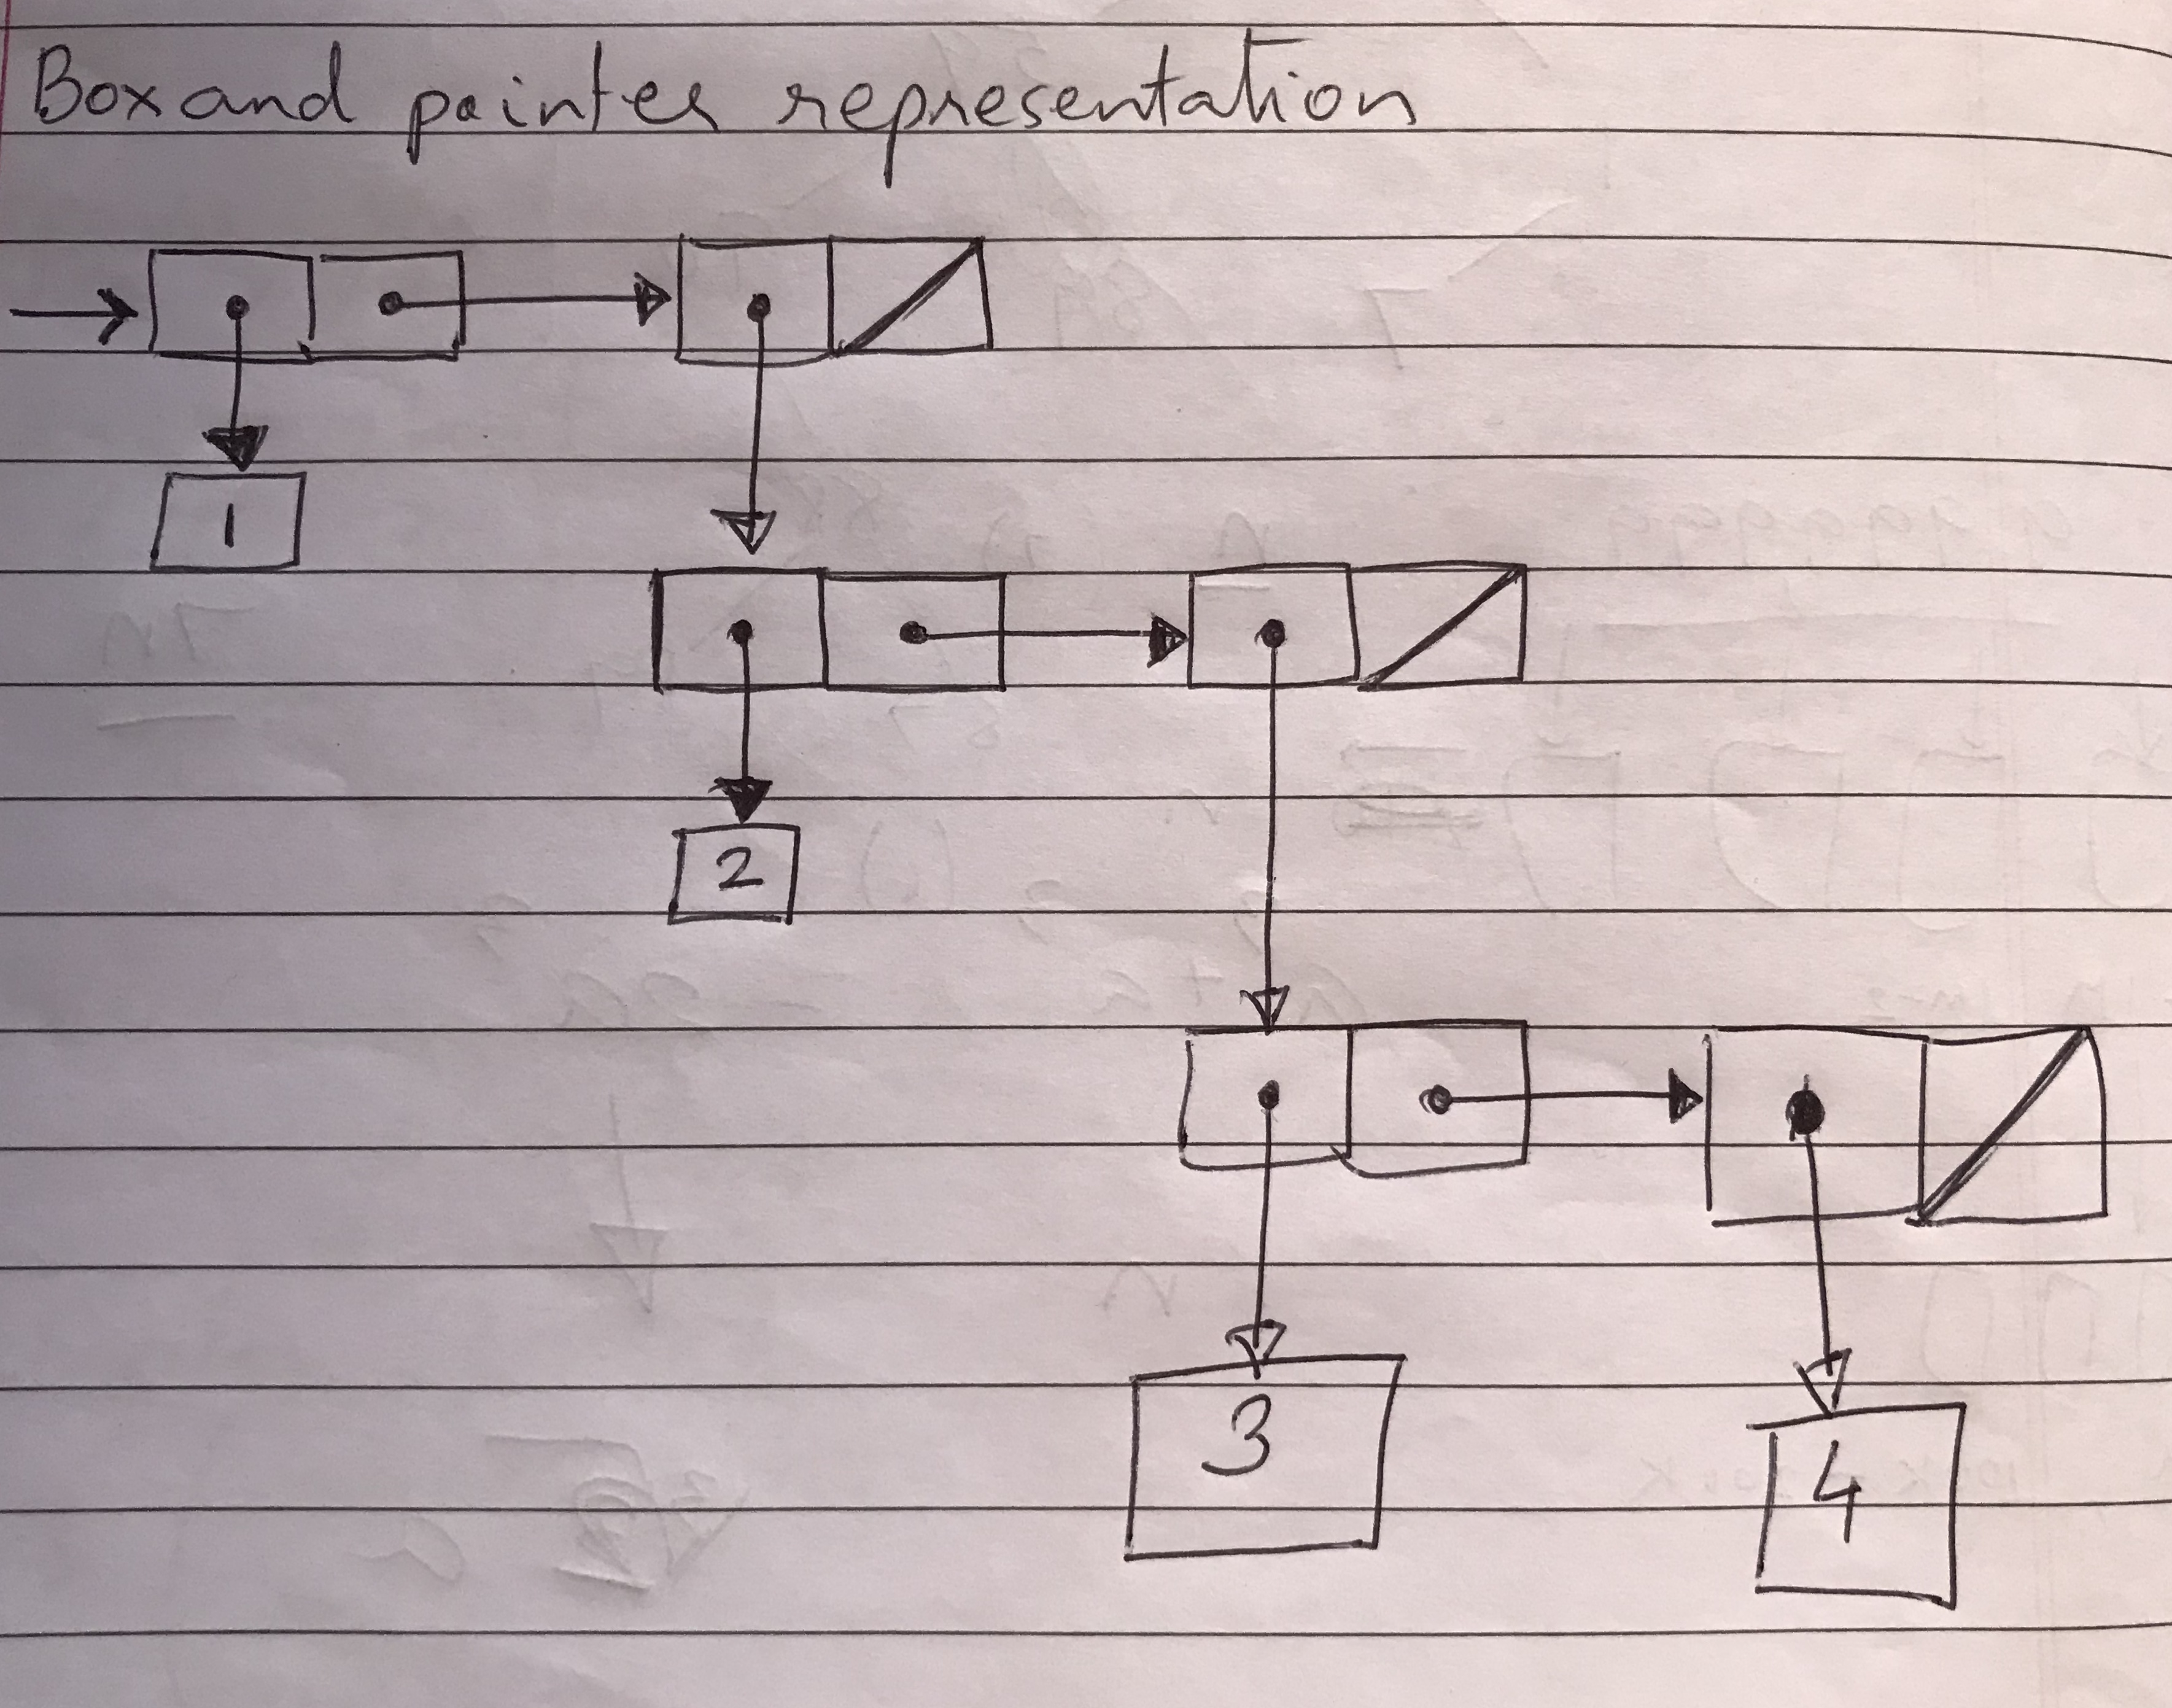 Box and pointer representation
1
2
3
4